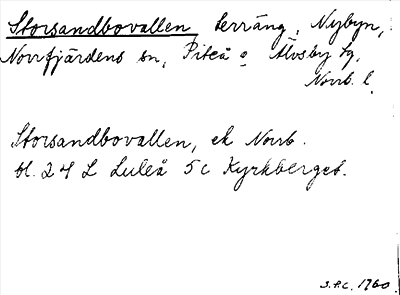 Storsandbovallen, terräng, Nybyn,
Norrfjärdens sn, Piteå o Älvsby tg,
Norrb. l.
Storsandbovallen, ek Norrb.
bl. 24 L Luleå 5c Kyrkberget.
S.P.C. 1960